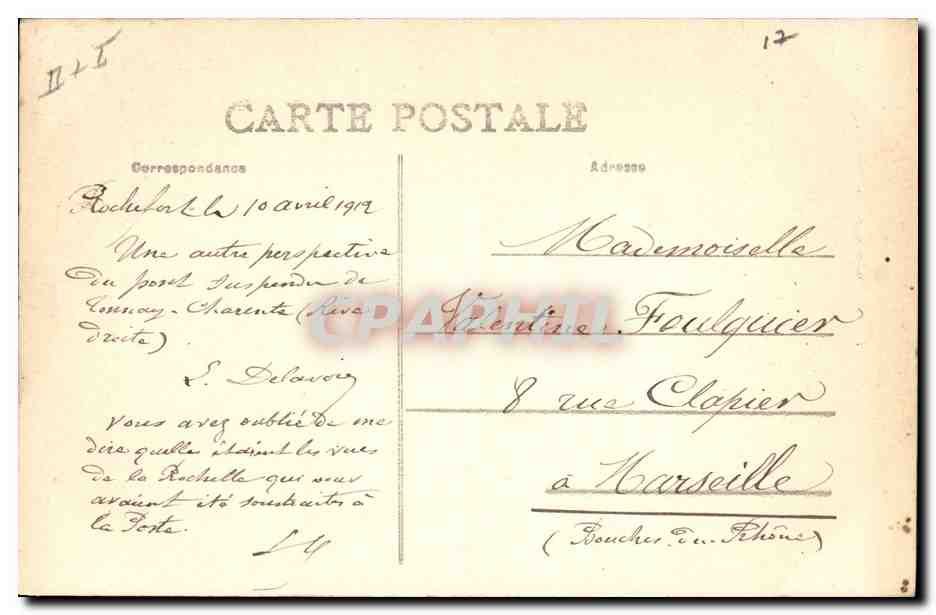 II + I
17
CARTE POSTALE
Correspondance
Adresse
Rochefort le 10 avril 1912
Une autre perspective
du pont suspendu de
Tonnay-Charente (Rive
droite)
vous avez oublié de me
dire quelles étaient les vues
de la Rochelle qui vous
avaient été soustraites à
la Poste.
Mademoiselle
Valentine Foulquier
8 rue Clapier
à Marseille
(Bouches-du-Rhône)
CPAPHIL